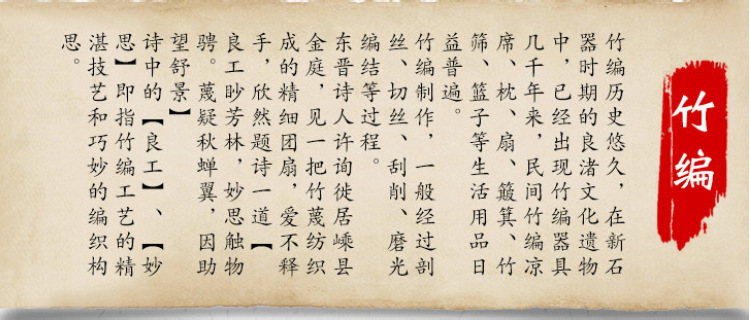 竹编
竹编历史悠久，在新石
器时期的良渚文化遗物
中，已经出现竹编器具
几千年来，民间竹编凉
席、枕、扇、簸箕、竹
筛、篮子等生活用品日
益普遍。
竹编制作，一般经过剖
丝、切丝、刮削、磨光
编结等过程。
东晋诗人许询徙居嵊县
金庭，见一把竹蔑纺织
成的精细团扇，爱不释
手，欣然题诗一道【
良工眇芳林，妙思触物
骋。蔑疑秋蝉翼，因助
望舒景】
诗中的【良工】、【妙
思】即指竹编工艺的精
湛技艺和巧妙的编织构
思。